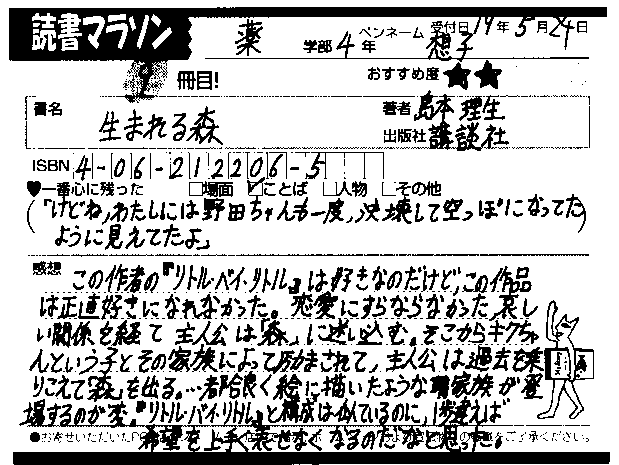 読書マラソン 薬 学部 4 年 ペンネーム 想子 受付日 19 年 5 月 24 日
9 冊目! おすすめ度 ★★
書名 生まれる森 著者 島本 理生
出版社 講談社
ISBN 4-06-212206-5
♥一番心に残った □場面 ☑ことば □人物 □その他
(「けどね,わたしには野田ちゃんも一度,決壊して空っぽになってた
ように見えてたよ」)
感想 この作者の『リトル・バイ・リトル』は好きなのだけど,この作品
は正直好きになれなかった。恋愛にすらならなかった,哀し
い関係を経て 主人公は「森」に迷い込む。そこからキクちゃ
んという子とその家族によって励まされて,主人公は過去を乗
りこえて「森」を出る。…都合良く絵に描いたような 家族が登
場するのが変。『リトル・バイ・リトル』と構成は似ているのに,1歩違えば
希望を上手く表せなくなるのだなと思った。
●お寄せいただいた ご了承ください。